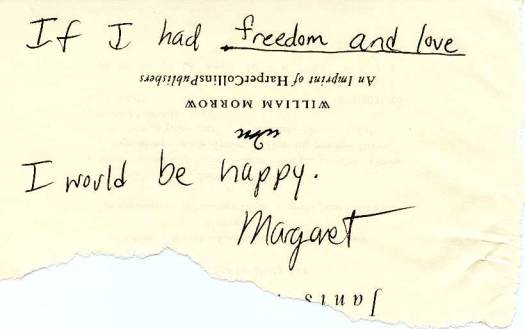 If I had freedom and love
An Imprint of HarperCollinsPublishers
WILLIAM MORROW
I would be happy.
Margaret
Janis